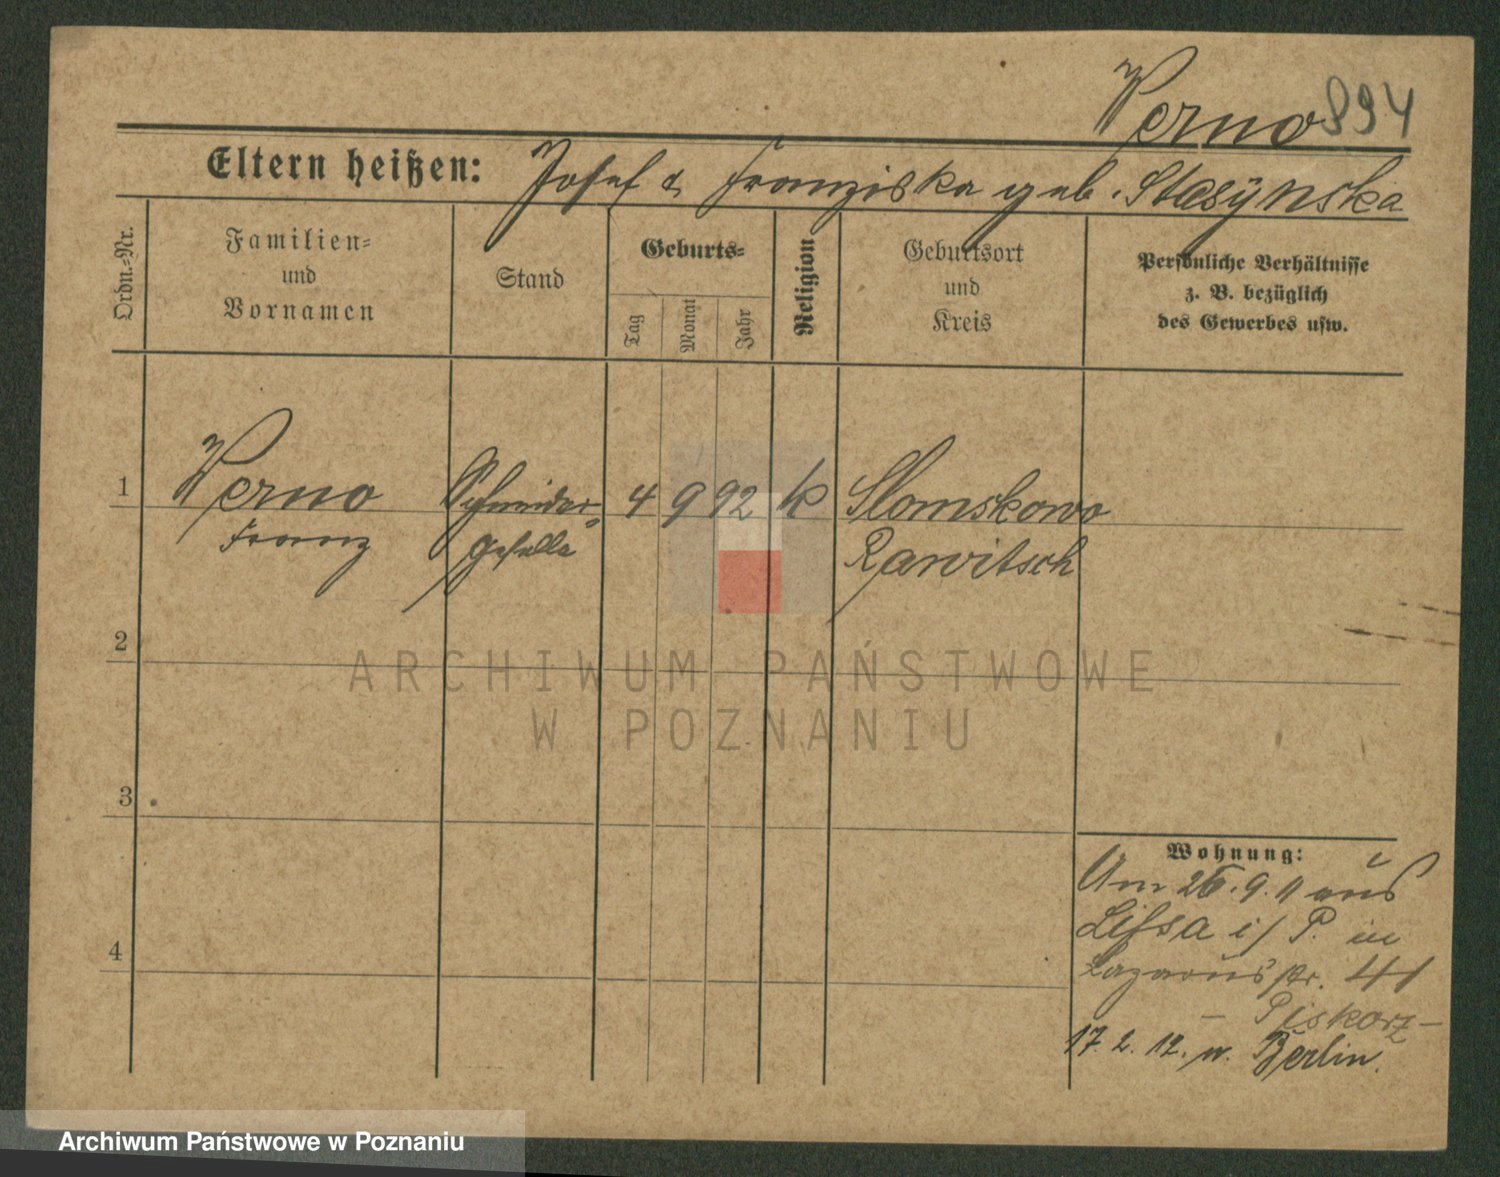 Verno 894
Eltern heißen: Josef & Franziska geb. Stasÿnska
Ordn.-Nr.
Familien-
und
Vornamen
Stand
Geburts-
Tag
Monat
Jahr
Religion
Geburtsort
und
Kreis
Persönliche Verhältnisse
z. B. bezüglich
des Gewerbes usw.
1 Verno Schneider- 4 9 92 k Slomskowo
Franz geselle Rawitsch
2
ARCHIWUM PAŃSTWOWE
W POZNANIU
3
Wohnung:
Am 26.9.11 aus
Lissa i/P. in
4
Lazarusstr. 41
– Piskorz –
17. 2. 12. n. Berlin.
Archiwum Państwowe w Poznaniu